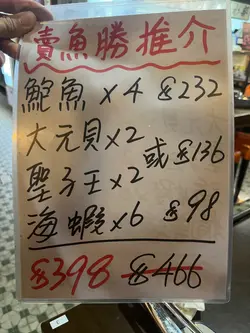 賣魚勝推介
鮑魚 x 4 $232
大元貝 x 2
或 $136
聖子王 x 2
海蝦 x 6 $98
$398 $466